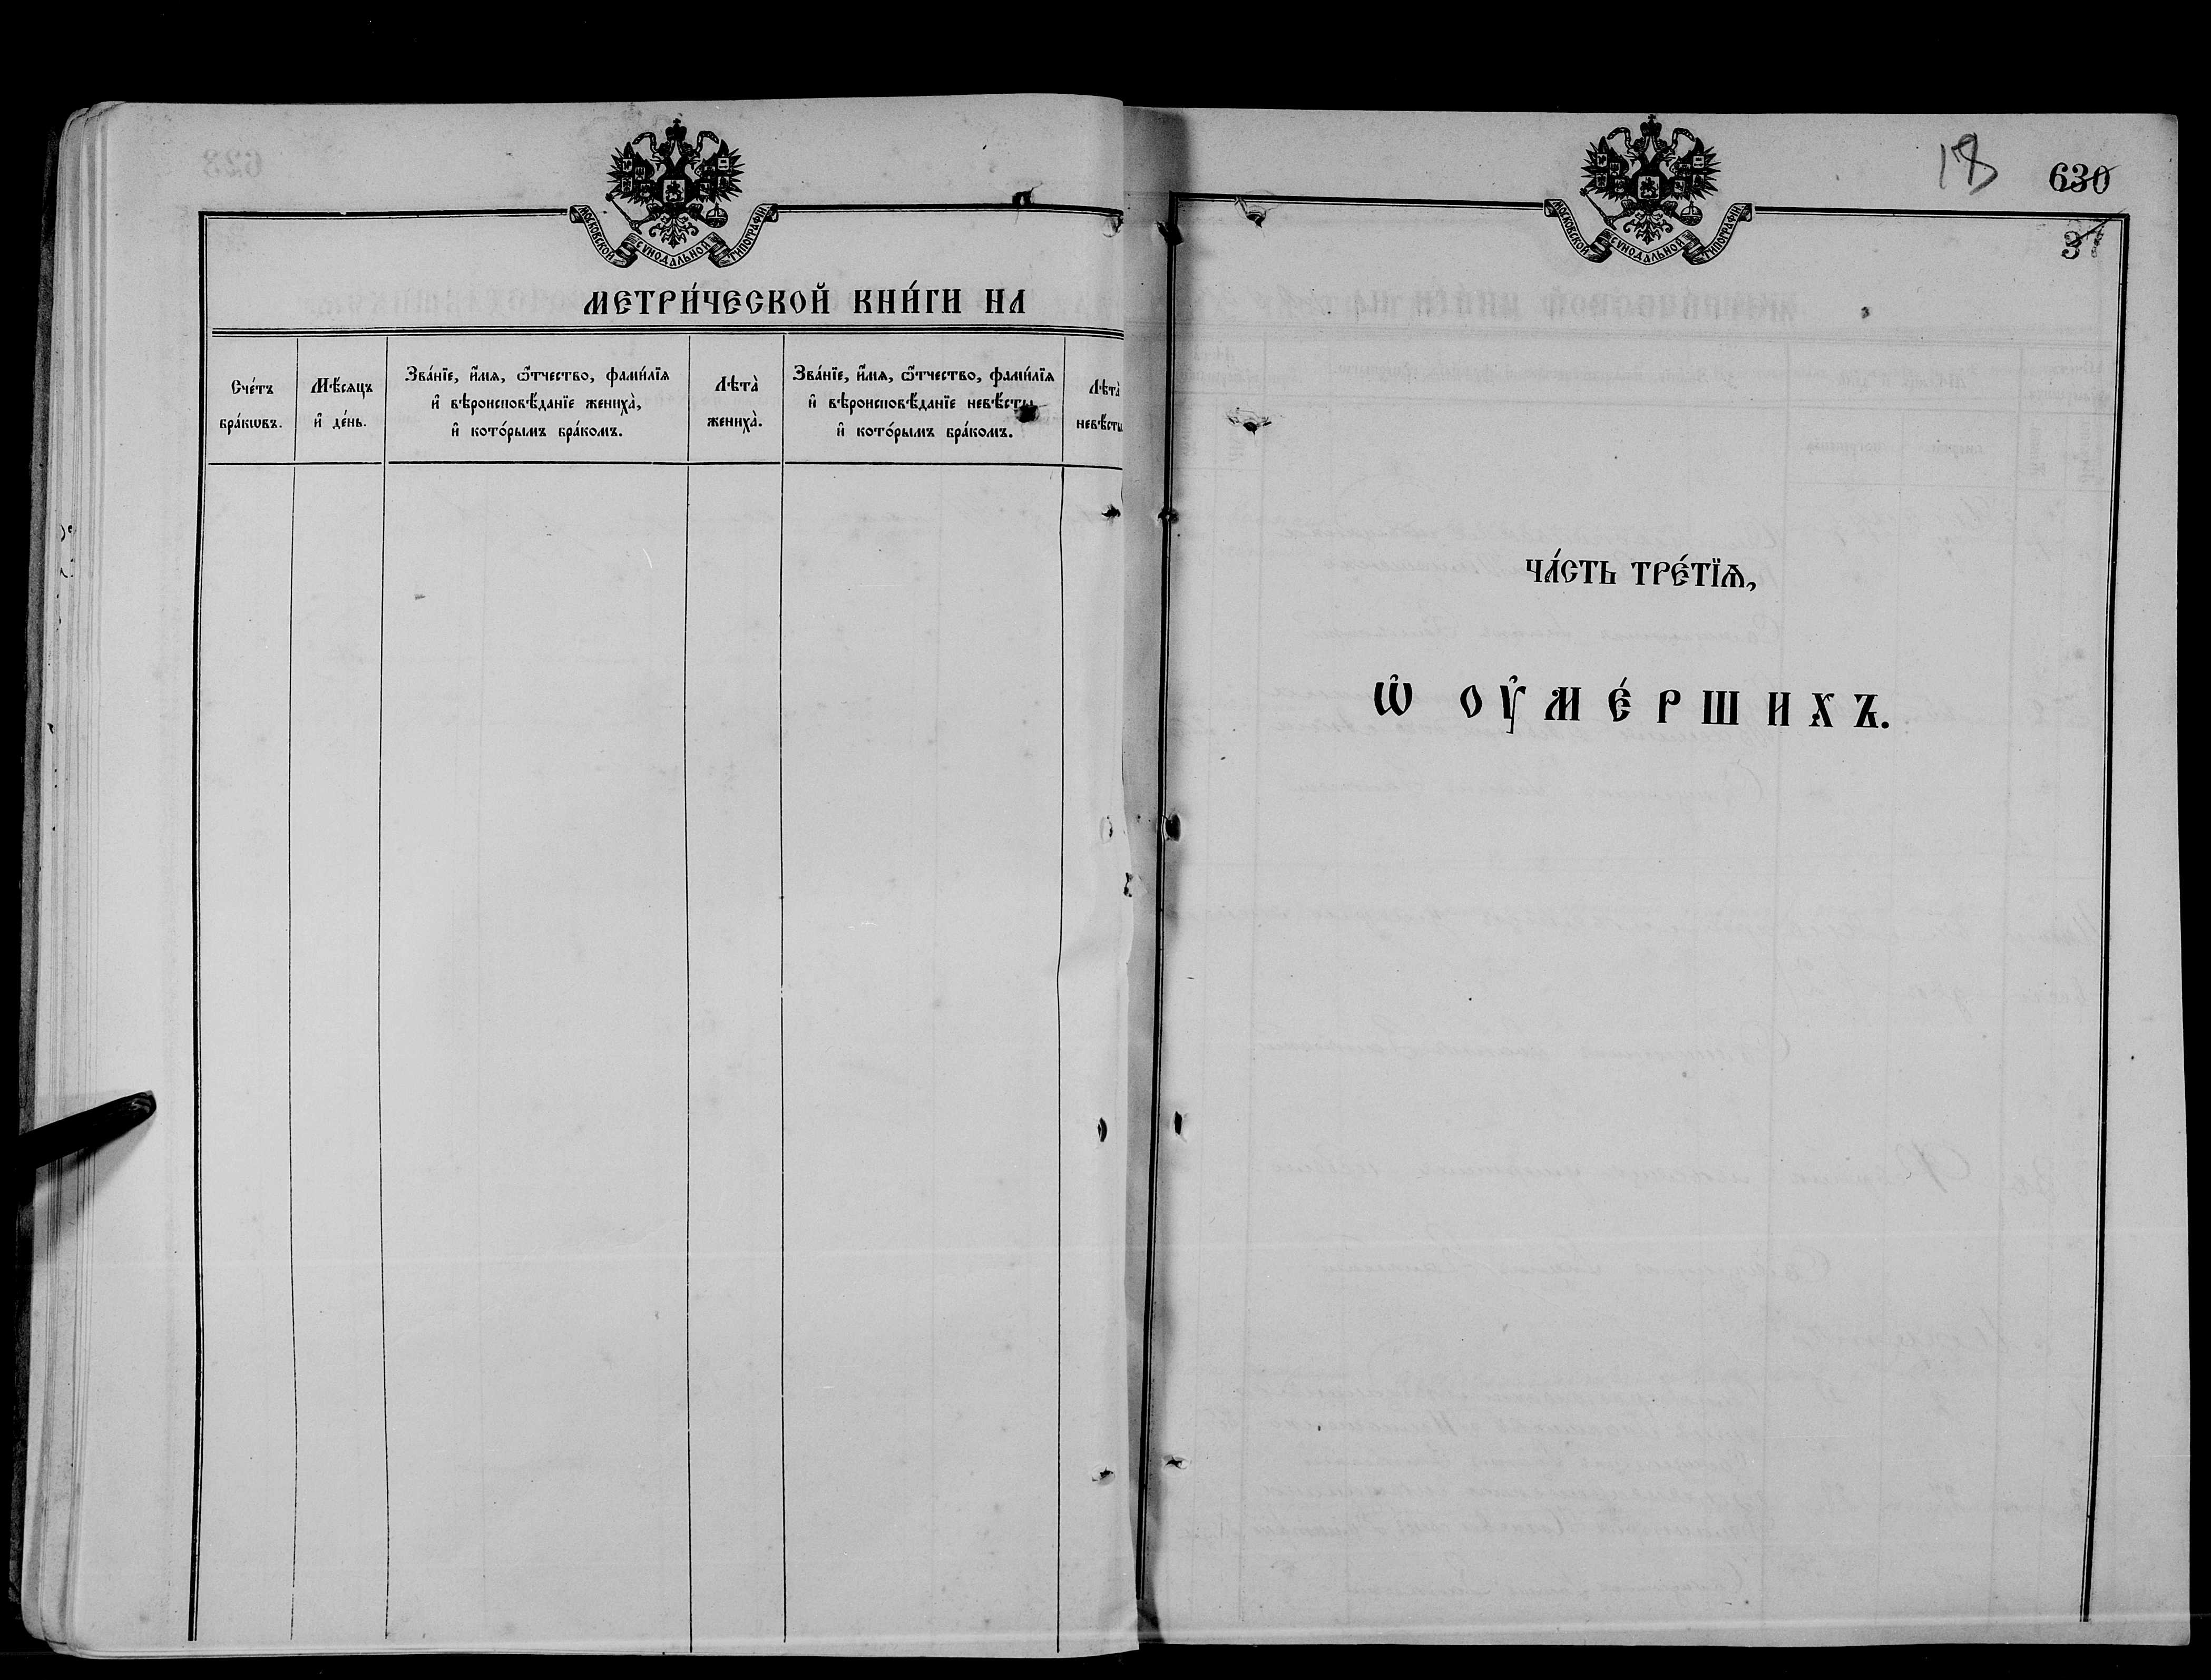 МОСКОВСКОЙ СѴНОДАЛЬНОЙ ТИПОГРАФІИ
МЕТРИ́ЧЕСКОЙ КНИ́ГИ НА
Сче́тъ
бра́кѡвъ.
Мѣ́сяцъ
и҆ де́нь.
Зва́нїе, и҆́мя, ѻ҆́тчество, фами́лїя
и҆ вѣроисповѣ́данїе жениха̀,
и҆ кото́рымъ бра́комъ.
Лѣта̀
жениха̀.
Зва́нїе, и҆́мя, ѻ҆́тчество, фами́лїя
и҆ вѣроисповѣ́данїе невѣ́сты,
и҆ кото́рымъ бра́комъ.
Лѣта̀
невѣ́сты
18
630
МОСКОВСКОЙ СѴНОДАЛЬНОЙ ТИПОГРАФІИ
ЧА́СТЬ ТРЕ́ТЇѦ,
Ѡ҆ ОУ҆МЕ́РШИХЪ.